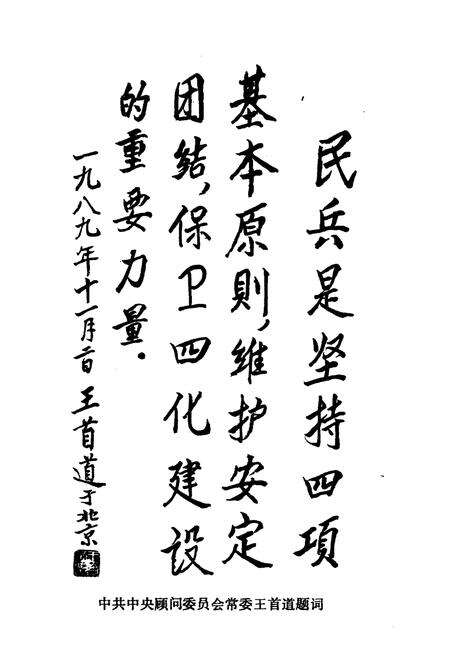 民兵是坚持四项
基本原则,维护安定
团结,保卫四化建设
的重要力量.
一九八九年十一月二日 王首道于北京
中共中央顾问委员会常委王首道题词